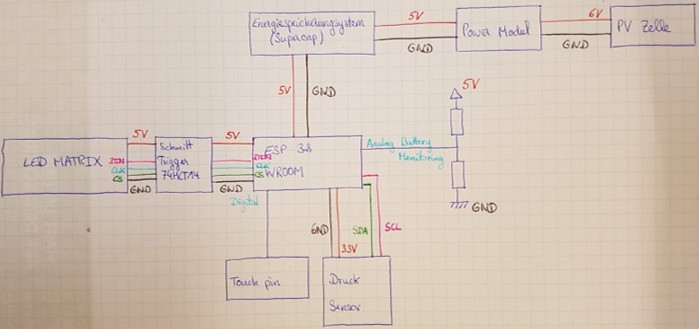 Energiespeicherungsystem
(Supercap)
5V
GND
Power Modul
6V
GND
PV Zelle
5V
GND
5V
LED MATRIX
5V
DIN
CLK
CS
GND
Schmitt
Trigger
74HCT14
5V
DIN
CLK
CS
GND
Digital
ESP 32
WROOM
Analog Battery
Monitoring
GND
GND
3.3V
SDA
SCL
Touch pin
Druck
Sensor